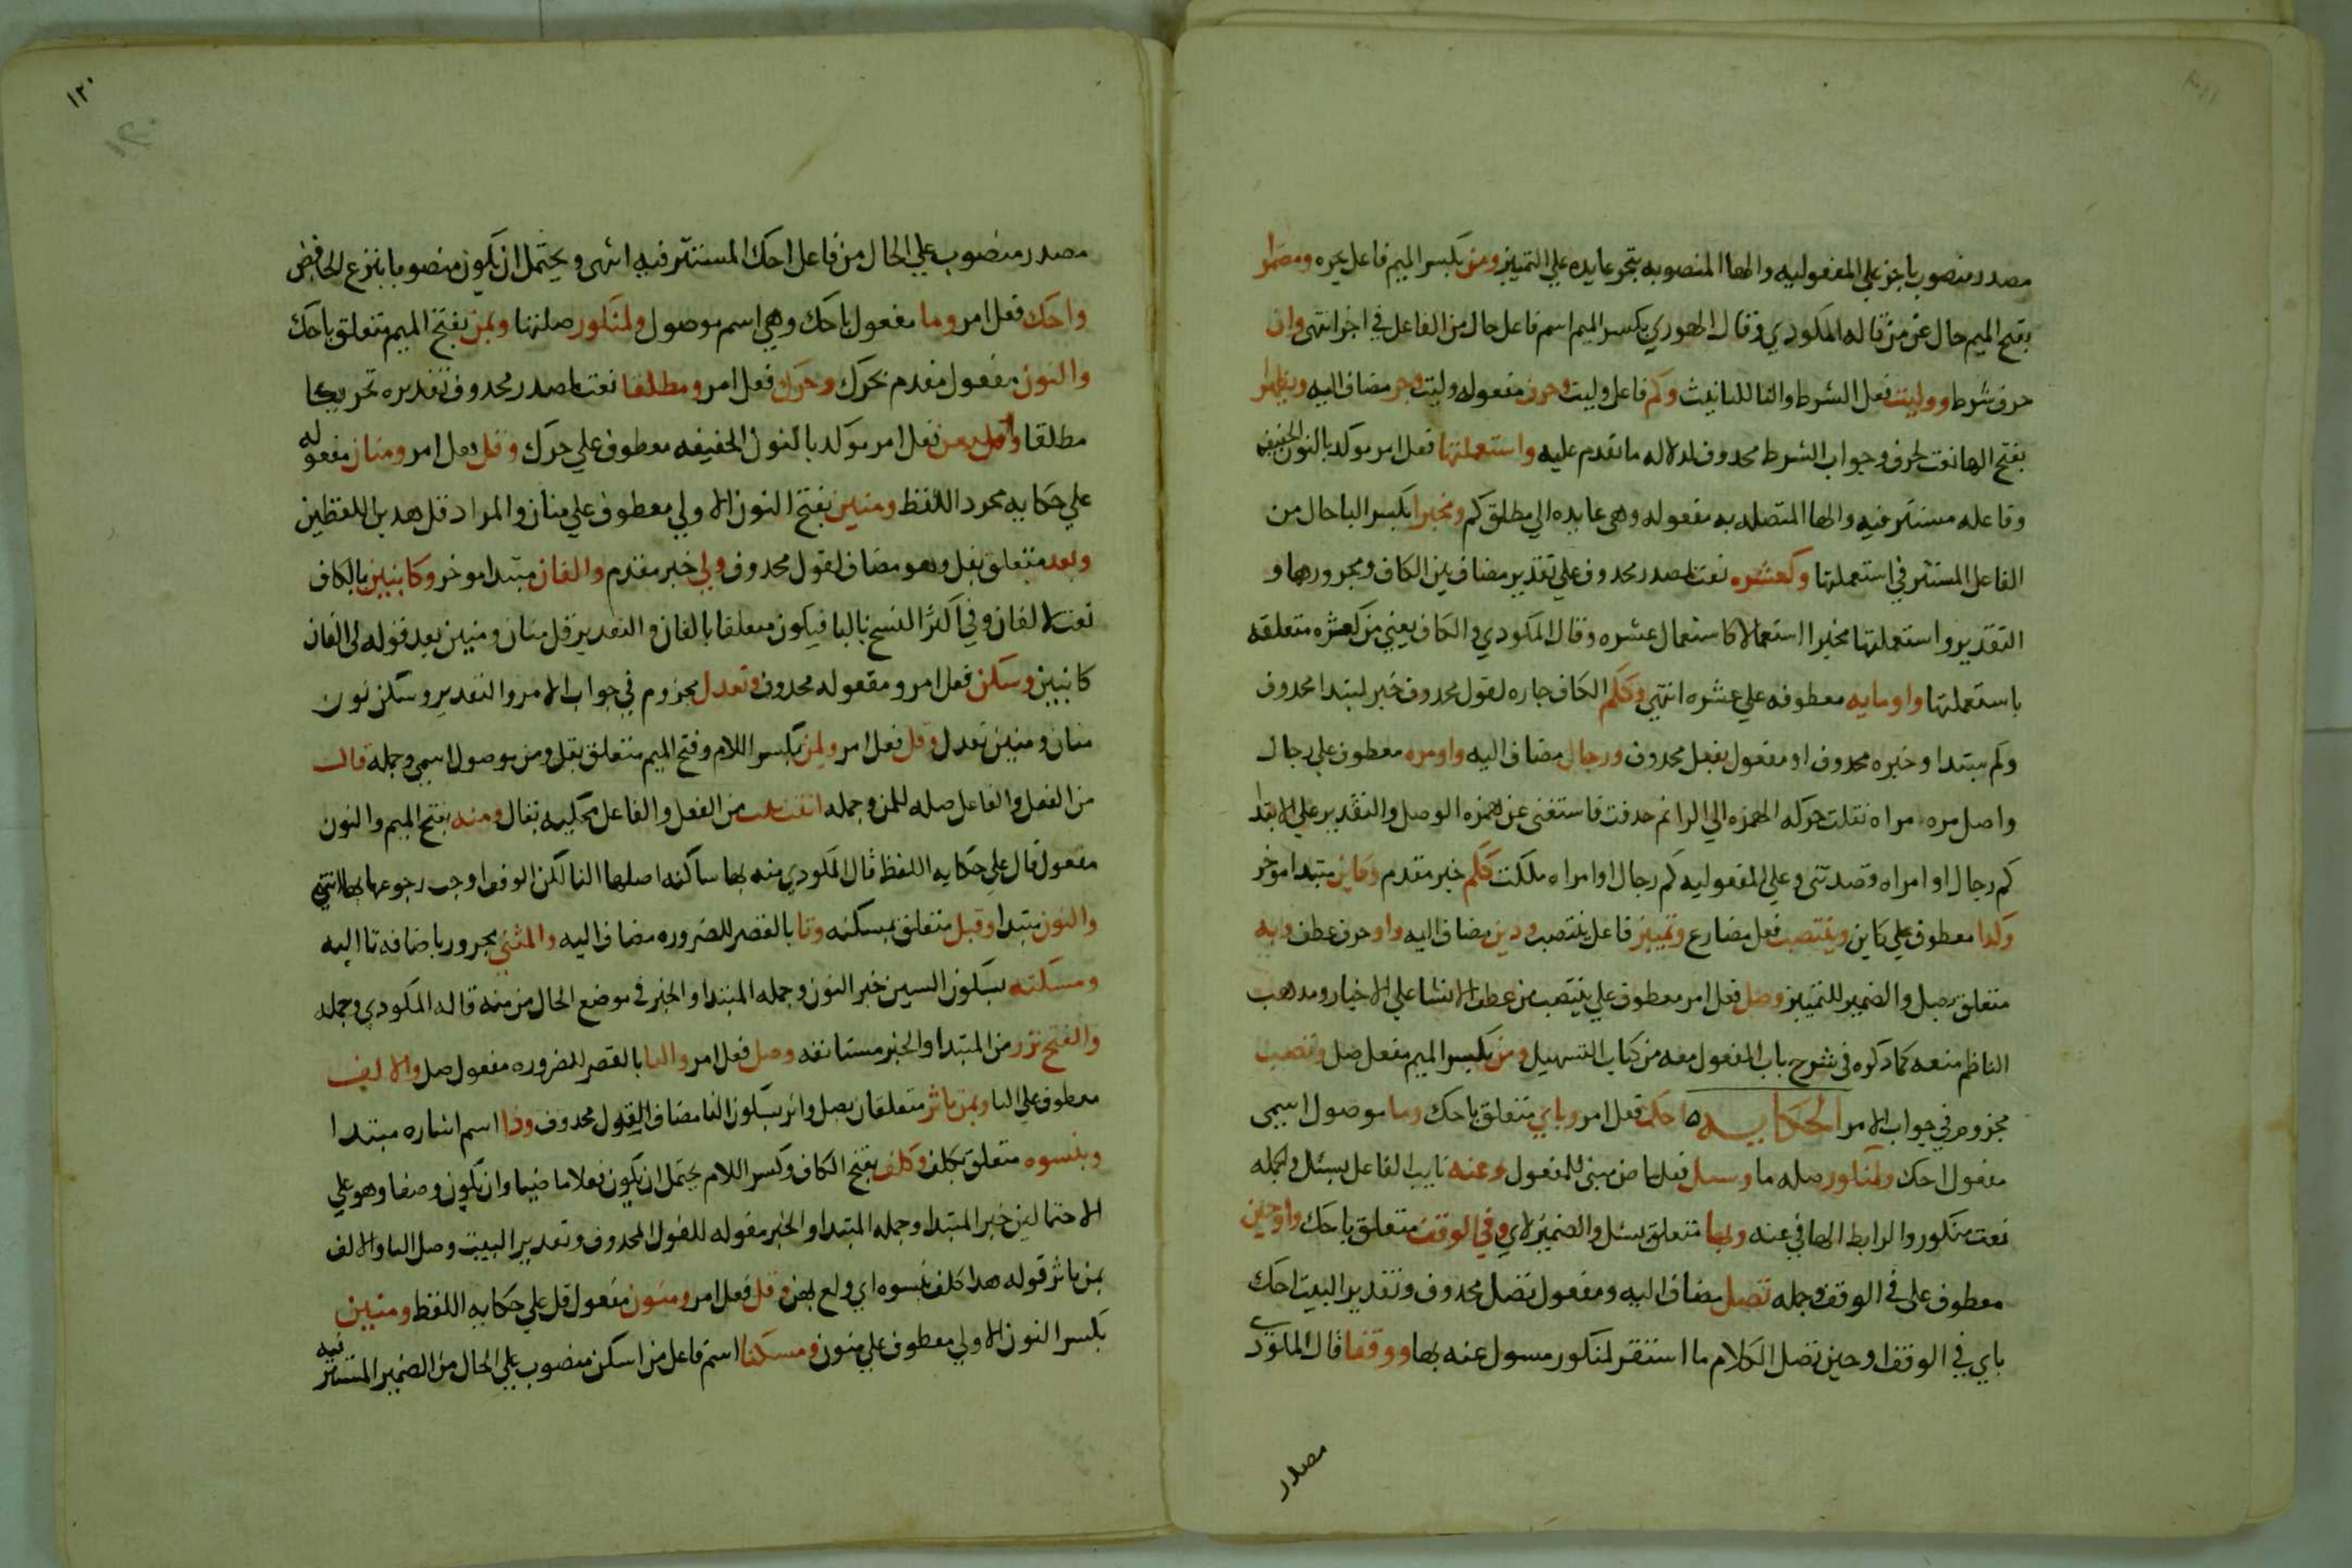 مصدر منصوب باجز علي المفعوليه والها المنصوبه بتجر عايده علي التمييز ومن بكسر الميم فاعل يجره ومضمرا
بفتح الميم حال من من قاله المكودي وقال الهوري بكسر الميم اسم فاعل حال من الفاعل في اجز انتهى وان
حرف شرط ووليت فعل الشرط والتا للتانيث وكم فاعل وليت وحرف مفعوله وليت وجر مضاف اليه ويظهرا
بفتح الها نعت لحرف وجواب الشرط محدوف لدلاله ما تقدم عليه واستعملنها فعل امر موكد بالنون الخفيفه
وفاعله مستتر فيه والها المتصله به مفعوله وهي عايده الي مطلق كم ومخبرا بكسر البا حال من
الفاعل المستتر في استعملنها وكعشره نعت لمصدر محدوف علي تقدير مضاف بين الكاف ومجرورها و
التقدير واستعملنها مخبرا استعمالا كاستعمال عشره وقال المكودي والكاف يعني من كعشره متعلقه
باستعملنها واو مايه معطوفه علي عشره انتهي وككم الكاف جاره لقول محدوف خبر لمبتدا محدوف
وكم مبتدا وخبره محدوف او مفعول بفعل محدوف ورجال مضاف اليه واو مره معطوف علي رجال
واصل مره امراه نقلت حركه الهمزه الي الرا ثم حدفت فاستغنى عن همزه الوصل والتقدير علي الابتدا
كم رجال او امراه قصدتني وعلي المفعوليه كم رجال او امراه ملكت ككم خبر مقدم وكاين مبتدا موخر
وكدا معطوف علي كاين وينتصب فعل مضارع وتمييز فاعل ينتصب ودين مضاف اليه واو حرف عطف وبه
متعلق بصل والضمير للتمييز وصل فعل امر معطوف علي ينتصب من عطف الانشا علي الاخبار ومدهب
الناظم منعه كما دكره في شرح باب المفعول معه من كتاب التسهيل ومن بكسر الميم مفعول صل وتصب
مجزوم في جواب الامر الحكايه احك فعل امر وباي متعلق باحك وما موصول اسمي
مفعول احك ولمنكور صله ما وسيل فعل ماض مبني للمفعول وعنه نايب الفاعل بسئل والجمله
نعت منكور والرابط الها في عنه وبها متعلق بسئل والضمير لاي وفي الوقف متعلق باحك واو حين
معطوف على في الوقف وجمله تصل مضاف اليه ومفعول تصل محدوف وتقدير البيت احك
باي في الوقف او حين تصل الكلام ما استقر لمنكور مسول عنه بها ووقفا قال المكودي
مصدر
١٢٠
مصدر منصوب علي الحال من فاعل احك المستتر فيه انتهى ويحتمل ان يكون منصوبا بنزع الخافض
واحك فعل امر وما مفعول باحك وهي اسم موصول ولمنكور صلتها وبمن بفتح الميم متعلق باحك
والنون مفعول مقدم بحرك وحرك فعل امر ومطلقا نعت لمصدر محدوف تقديره تحريكا
مطلقا واشبعن فعل امر موكد بالنون الخفيفه معطوف علي حرك وقل فعل امر ومنان مفعوله
علي حكايه مجرد اللفظ ومنين بفتح النون الاولي معطوف علي منان والمراد قل هدين اللفظين
وبعد متعلق بقل وهو مضاف لقول محدوف ولي خبر مقدم والفان مبتدا موخر وكابنين بالكاف
نعت لالفان وفي اكثر النسخ بالبا فيكون متعلقا بالفان والتقدير قل منان ومنين بعد قوله لي الفان
كابنين وسكن فعل امر ومفعوله محدوف وتعدل مجزوم في جواب الامر والتقدير وسكن نون
منان ومنين تعدل وقل فعل امر ولمن بكسر اللام وفتح الميم متعلق بقل ومن موصول اسمي وجمله قال
من الفعل والفاعل صله لمن وجمله اتت بنت من الفعل والفاعل محكيه بقال ومنه بفتح الميم والنون
مفعول قال علي حكايه اللفظ قال المكودي منه بها ساكنه اصلها التا لكن الوقف اوجب رجوعها بها انتهي
والنون مبتدا وقبل متعلق بمسكنه وتا بالقصر للضروره مضاف اليه والمثني مجرور باضافه تا اليه
ومسكنه بسكون السين خبر النون وجمله المبتدا والخبر في موضع الحال من منه قاله المكودي وجمله
والفتح نزر من المبتدا والخبر مستانفه وصل فعل امر والتا بالقصر للضروره مفعول صل والالف
معطوف علي التا وبمن باثر متعلقان بصل واثر بسكون الثا مضاف لقول محدوف ودا اسم اشاره مبتدا
وبنسوه متعلق بكلف وكلف بفتح الكاف وكسر اللام يحتمل ان يكون فعلا ماضيا وان يكون وصفا وهو علي
الاحتمالين خبر المبتدا وجمله المبتدا والخبر مقوله للقول المحدوف وتقدير البيت وصل التا والالف
بمن باثر قوله هدا كلف بنسوه اي ولع بهن وقل فعل امر ومنون مفعول قل علي حكايه اللفظ ومنين
بكسر النون الاولي معطوف علي منون ومسكنا اسم فاعل من اسكن منصوب علي الحال من الضمير المستتر فيه